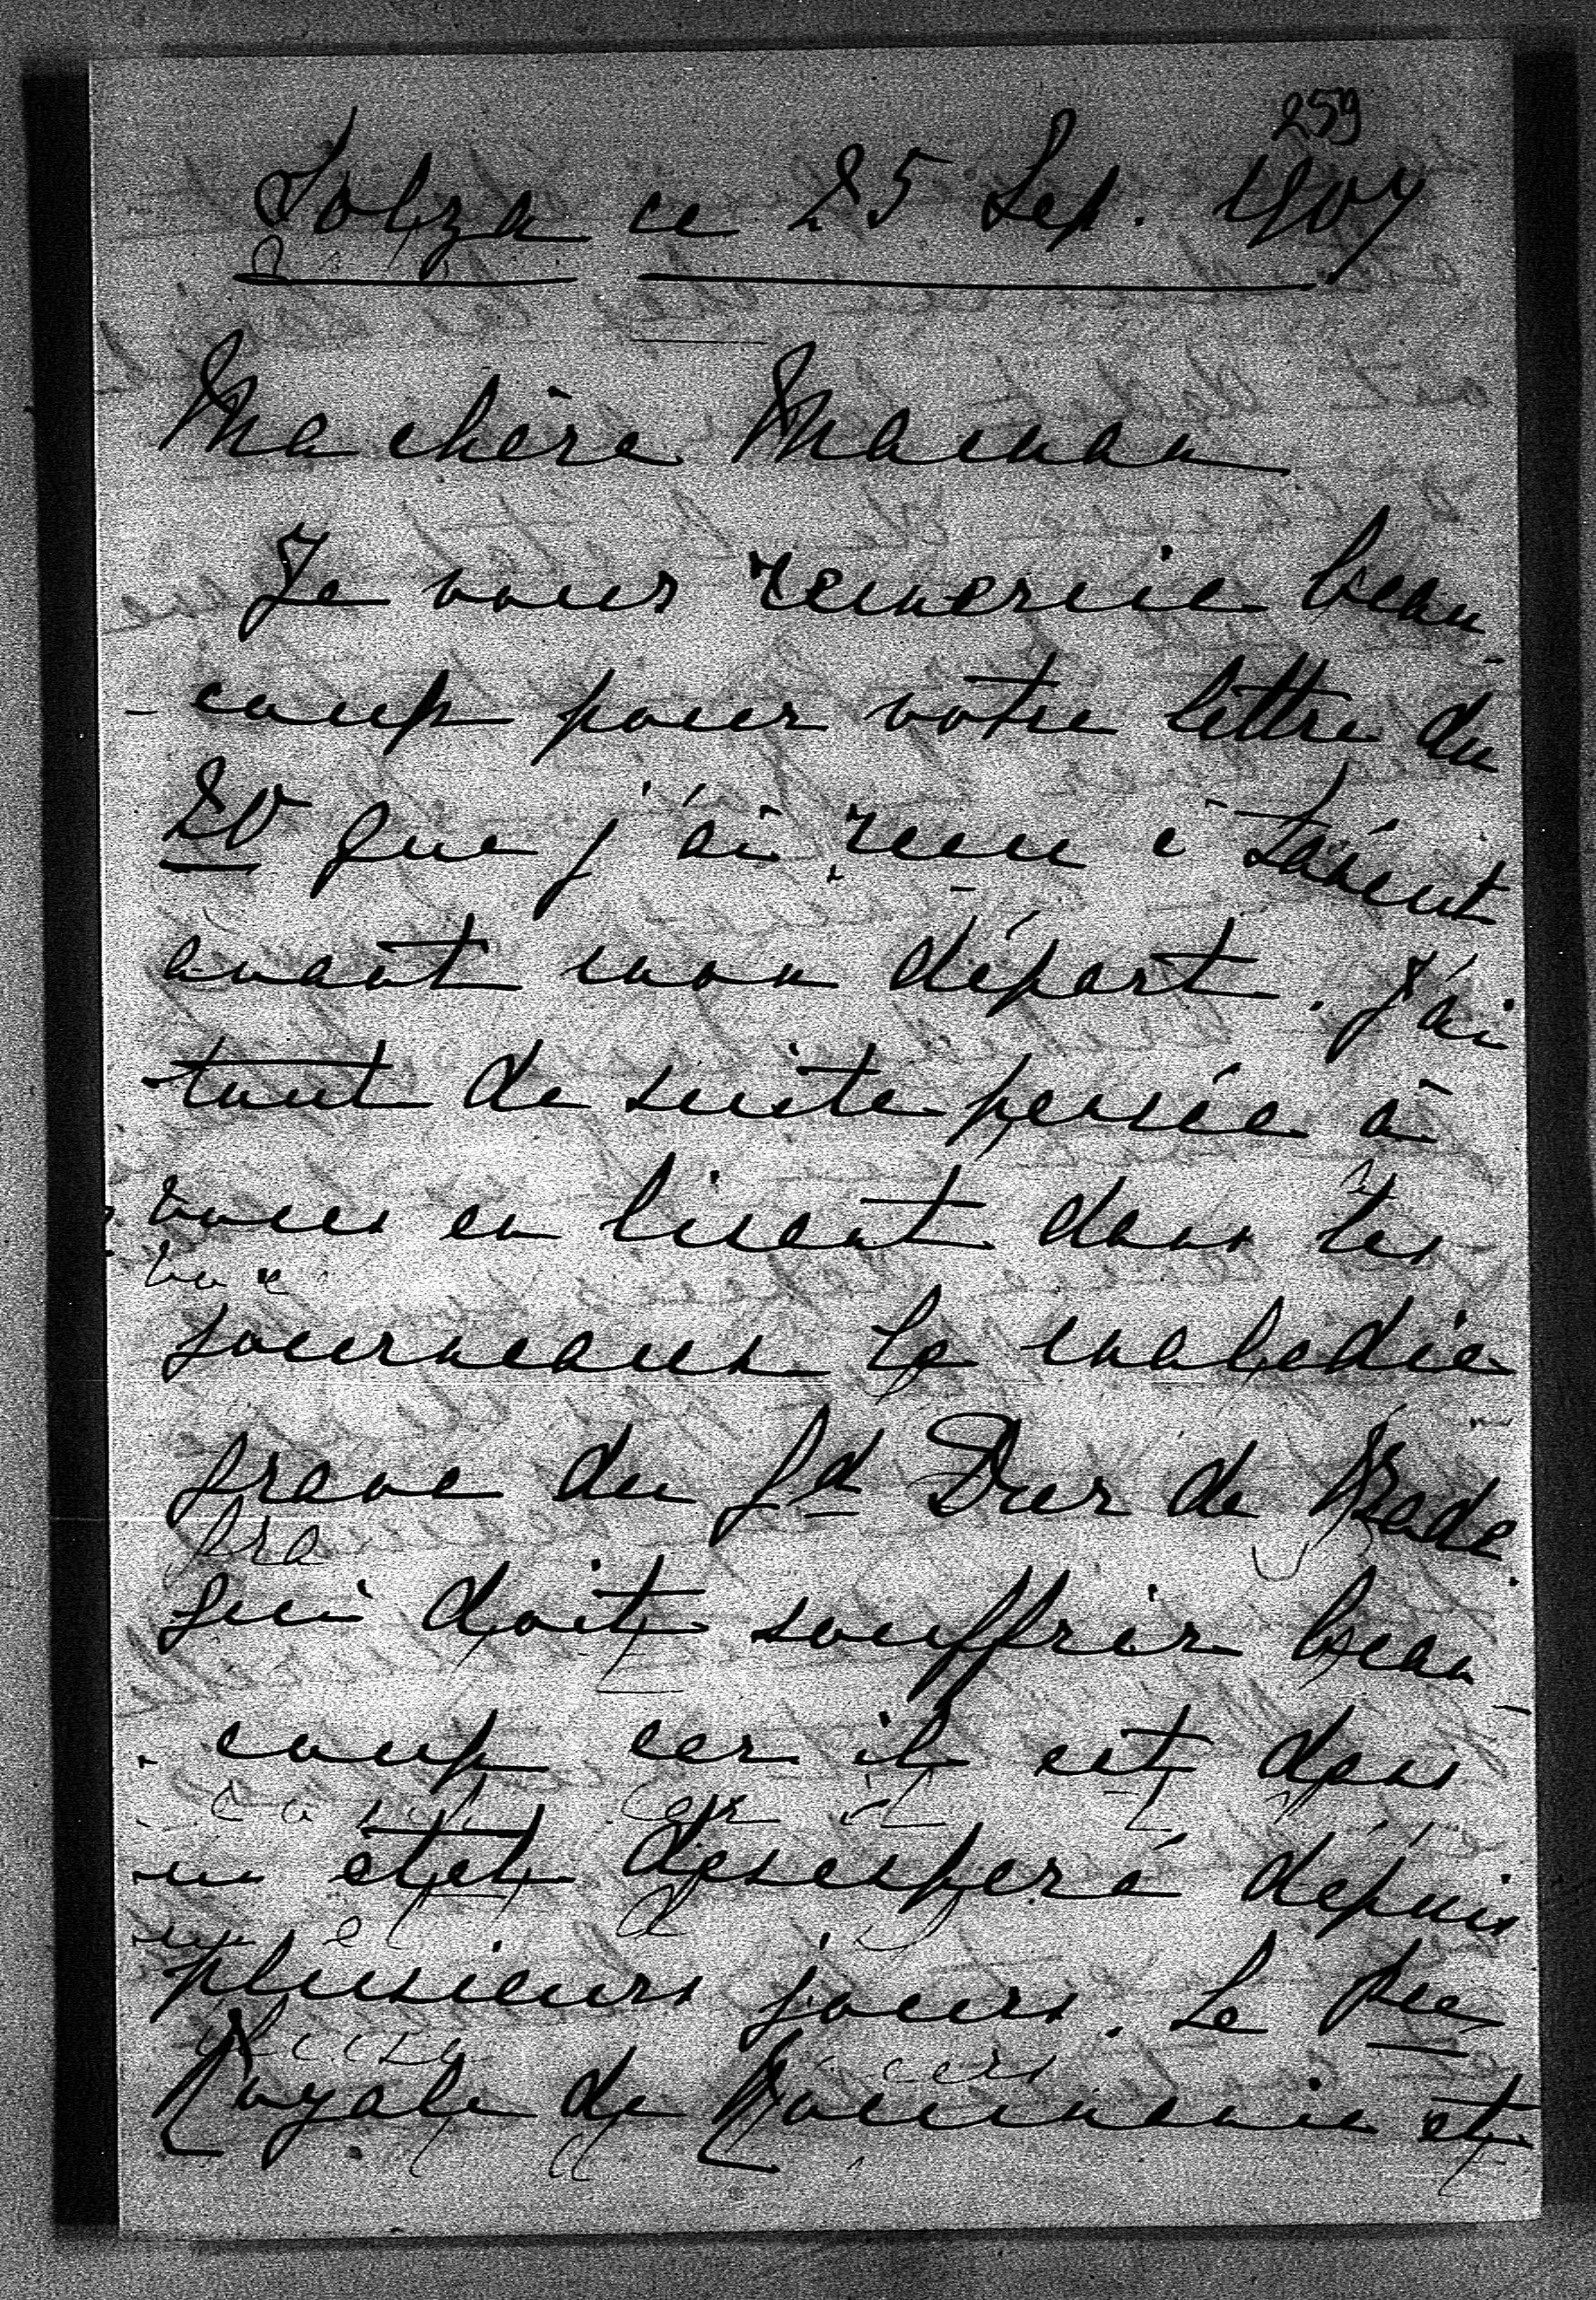 259
Solza ce 25 Sep. 1907
Ma chère Maman
Je vous remercie beau-
-coup pour votre lettre du
20 que j'ai reçu à
avant mon départ. J'ai
tout de suite pensée à
vous en lisant dans les
journeaux la maladie
grave du gd Duc de Bade
qui doit souffrir beau-
-coup car il est dans
un etat desesperé dépuis
plusieurs jours. Le Pce
Royale de Roumanie et